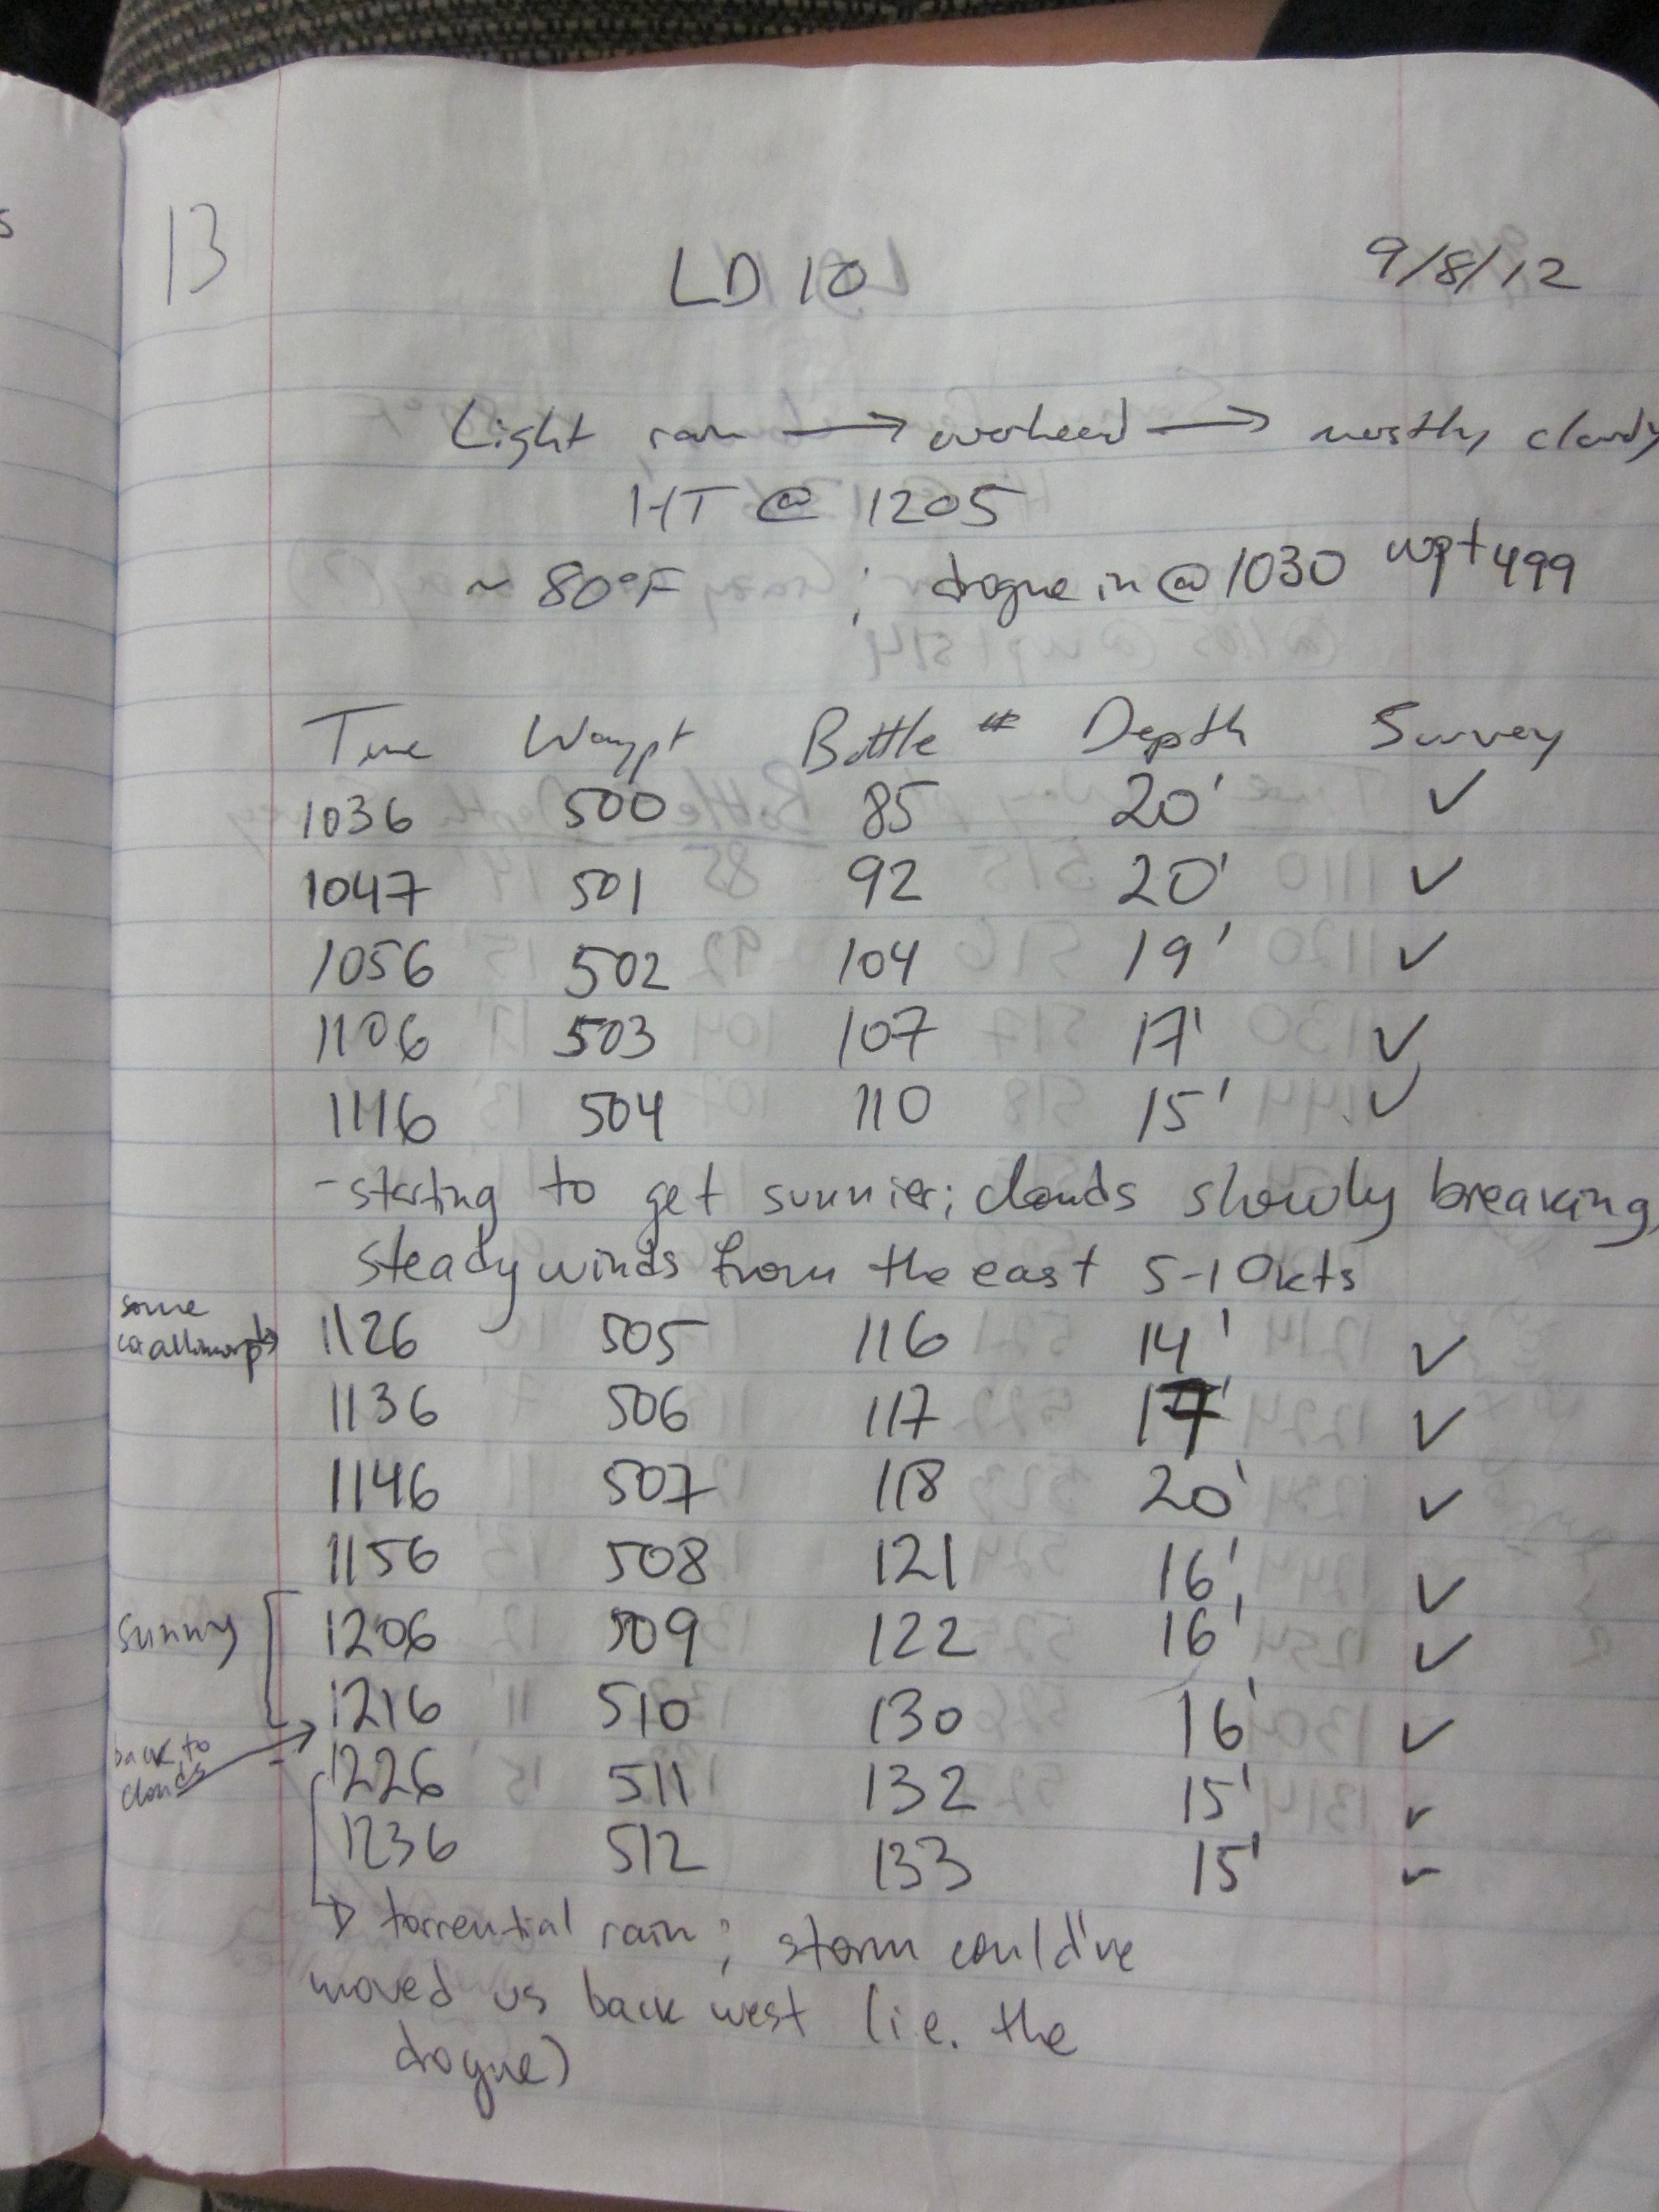 13
LD 10 9/8/12
Light rain → overhead → mostly cloudy
HT @ 1205
~ 80°F ; drogue in @ 1030 wpt 499
Time Waypt Bottle # Depth Survey
1036 500 85 20' ✓
1047 501 92 20' ✓
1056 502 104 19' ✓
1106 503 107 17' ✓
1116 504 110 15' ✓
- starting to get sunnier; clouds slowly breaking,
steady winds from the east 5-10kts
some
→ 1126 505 116 14' ✓
1136 506 117 17' ✓
1146 507 118 20' ✓
1156 508 121 16' ✓
sunny 1206 509 122 16' ✓
1216 510 130 16' ✓
back to
clouds → 1226 511 132 15' ✓
1236 512 133 15' ✓
→ torrential rain; storm could've
moved us back west (i.e. the
drogue)